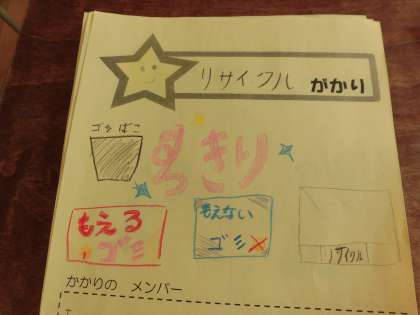 リサイクル がかり
ゴミばこ
すっきり
もえる
ゴミ
もえない
ゴミ
リサイクル
かかりの メンバー